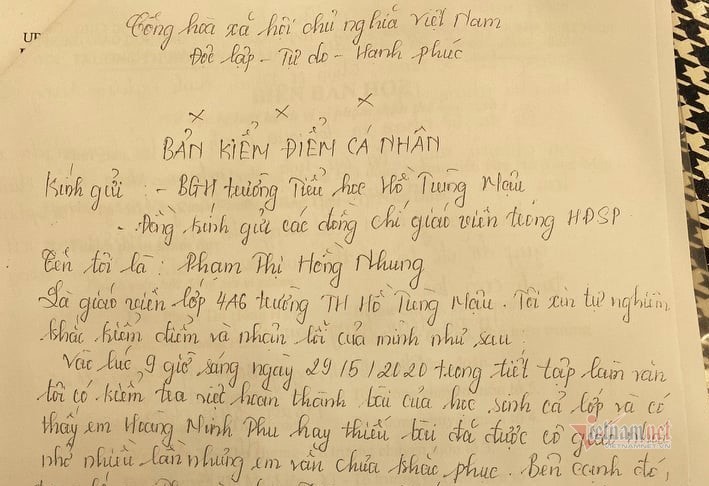 Cộng hòa xã hội chủ nghĩa Việt Nam
Độc lập - Tự do - Hạnh phúc
x x x
BẢN KIỂM ĐIỂM CÁ NHÂN
Kính gửi : - BGH trường Tiểu học Hồ Tùng Mậu
- Đồng kính gửi các đồng chí giáo viên trong HĐSP.
Tên tôi là : Phạm Thị Hồng Nhung
Là giáo viên lớp 4A6 trường TH Hồ Tùng Mậu. Tôi xin tự nghiêm
khắc kiểm điểm và nhận lỗi của mình như sau:
Vào lúc 9 giờ sáng ngày 29/5/2020 trong tiết tập làm văn
tôi có kiểm tra việc hoàn thành bài của học sinh cả lớp và có
thấy em Hoàng Minh Phu hay thiếu bài đã được cô giáo
nhở nhiều lần nhưng em vẫn chưa khắc phục. Bên cạnh đó,
vietnamnet